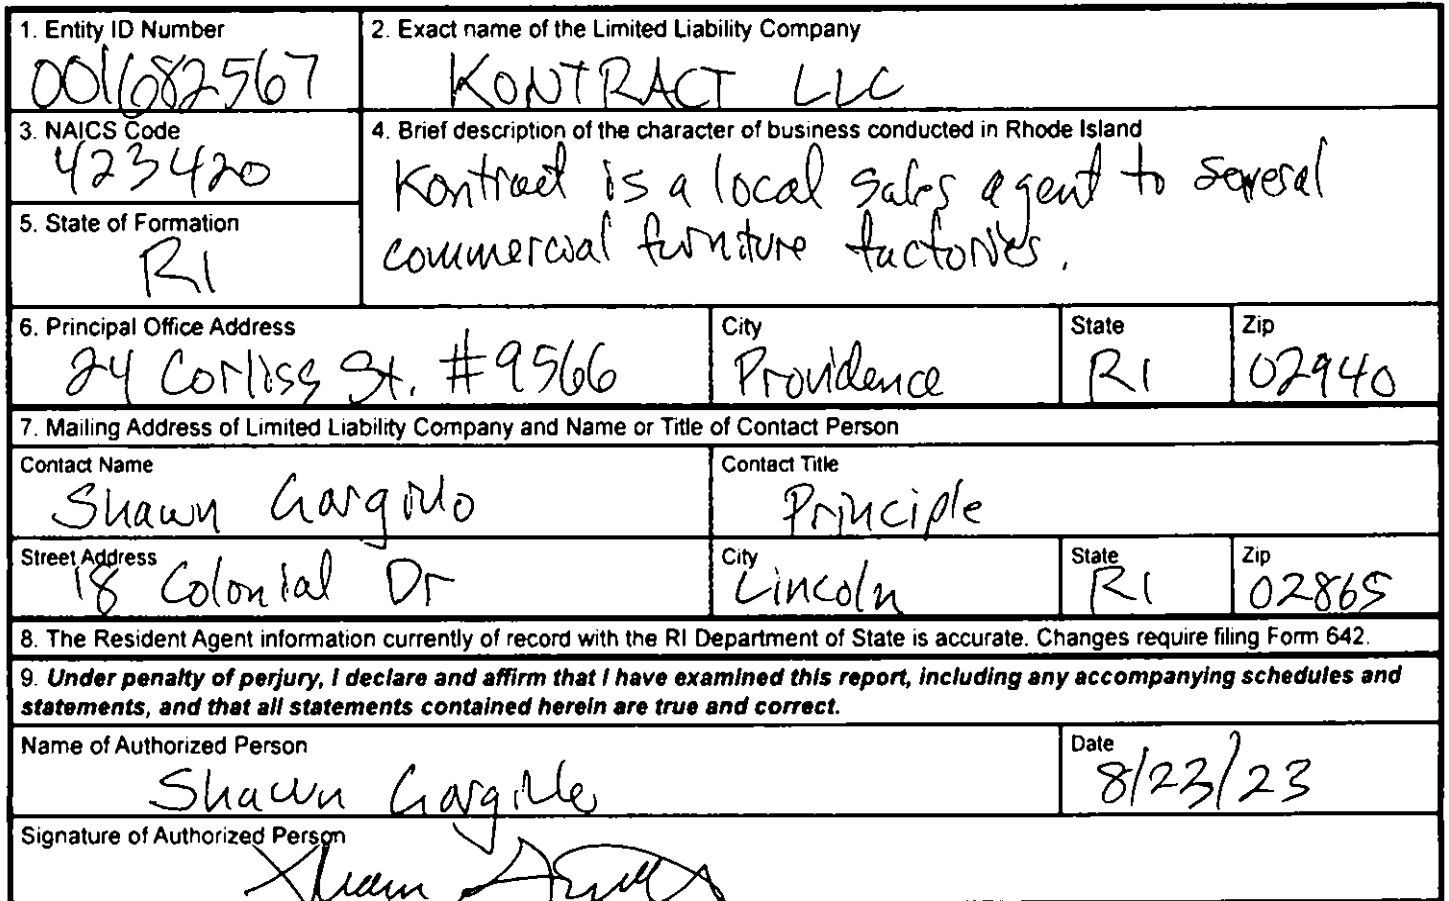 1. Entity ID Number
001682567
2. Exact name of the Limited Liability Company
KONTRACT LLC
3. NAICS Code
423420
4. Brief description of the character of business conducted in Rhode Island
Kontract is a local sales agent to several
commercial furniture factories.
5. State of Formation
RI
6. Principal Office Address
24 Corliss St. #9566
City
Providence
State
RI
Zip
02940
7. Mailing Address of Limited Liability Company and Name or Title of Contact Person
Contact Name
Shawn Gargillo
Contact Title
Principle
Street Address
18 Colonial Dr
City
Lincoln
State
RI
Zip
02865
8. The Resident Agent information currently of record with the RI Department of State is accurate. Changes require filing Form 642.
9. Under penalty of perjury, I declare and affirm that I have examined this report, including any accompanying schedules and
statements, and that all statements contained herein are true and correct.
Name of Authorized Person
Shawn Gargillo
Date
8/23/23
Signature of Authorized Person